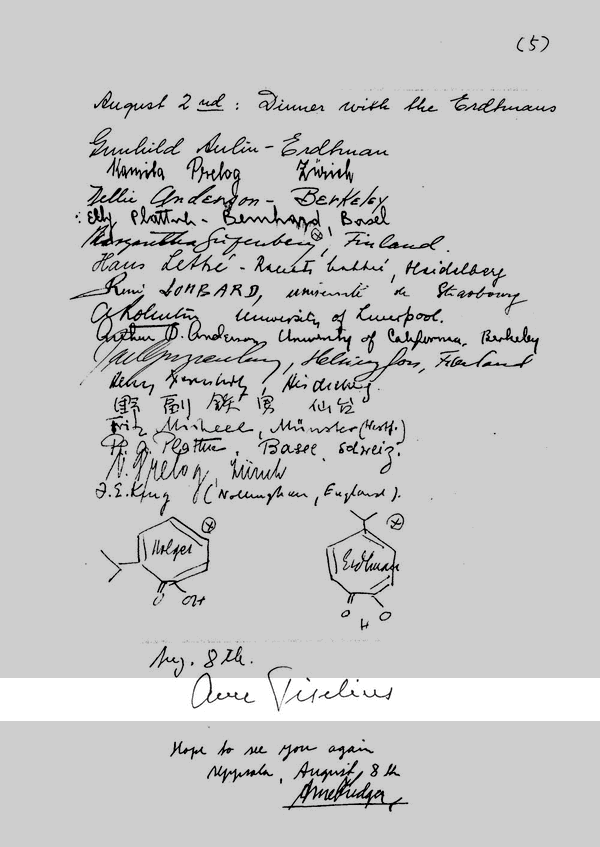 (5)
August 2nd: Dinner with the Erdtmans
Gunhild Aulin-Erdtman
Kamila Prelog Zürich
Nellie Anderson - Berkeley
Elly Plattner - Bernhard, Basel
Margaretha Gripenberg, Finland.
Hans Lettré - Renate Lettré, Heidelberg
René LOMBARD, université de Strasbourg
University of Liverpool.
Arthur G. Anderson University of California. Berkeley
Gripenberg, Helsingfors, Finland
Heidelberg.
野副 鉄男 仙台
Fritz Micheel, Münster (Westf.)
Pl. A. Plattner, Basel, Schweiz.
V. Prelog, Zürich
F.E. King (Nottingham, England).
Holger
O OH
Erdtman
O O
H
Aug. 8th.
Arne Tiselius
Hope to see you again
Uppsala, August, 8th
Arne Fredga